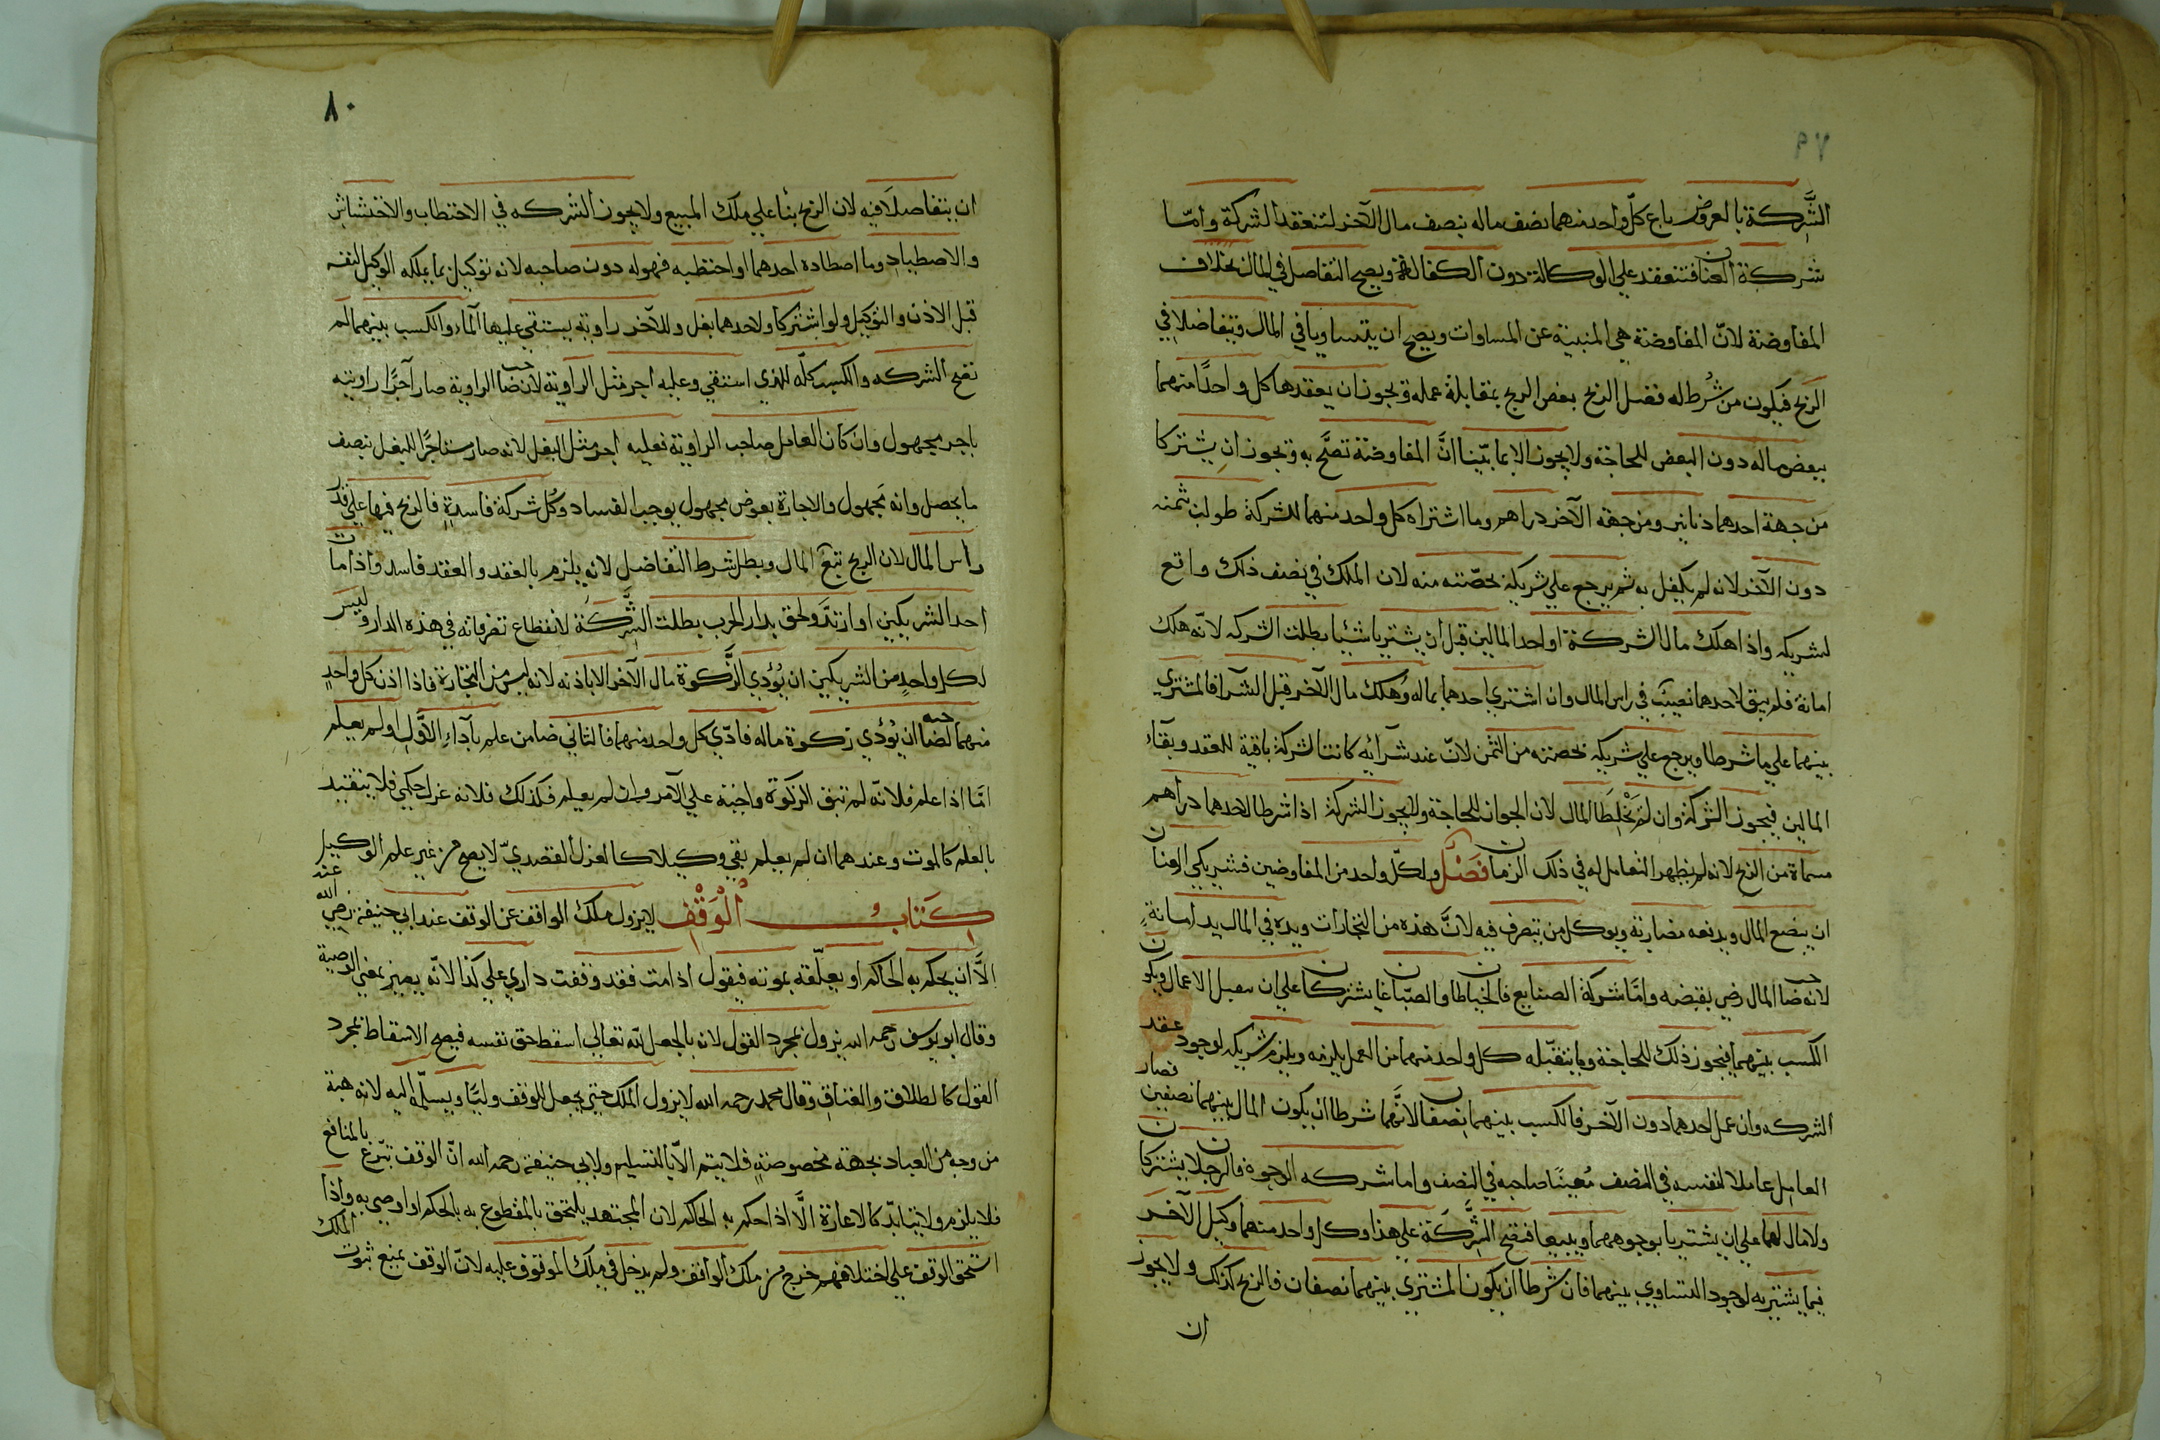 ٧٩
الشَّركة بالعروض باع كلّ واحد منهما نصف ماله بنصف مال الآخر لتنعقد الشركة وأمّا
شركة العنان فتنعقد علي الوكالة دون الكفالة ويصح التفاضل في المال بخلاف
المفاوضة لانّ المفاوضة هي المنبية عن المساوات ويصح ان يتساويا في المال وتفاضلا في
الربح فيكون من شُرط له فضل الربح بعض الربح بمقابلة عمله ويجوز ان يعقدها كل واحدًا منهما
ببعض ماله دون البعض للحاجة ولا يجوز الا بما بيّنا انَّ المفاوضة تصَّح به ويجوز ان يشتركا
من جهة احدهما دنانير ومن جهة الآخر دراهم وما اشتراه كل واحد منهما للشركة طولب ثمنه
دون الآخر لانه لم يكفل به ثم يرجع علي شريكه بحصّته منه لان الملك في نصف ذلك واقع
لشريكه واذا هلك مال الشركة او احد المالين قبل ان يشتريا شيئا بطلت الشركه لانّه هلك
امانة فلم يبق لاحدهما نصيب في راس المال وان اشتري احدهما بماله وهلك مال الآخر قبل الشرآ فالمشتري
بينهما علي ما شرطا ويرجع علي شريكه بحصته من الثمن لانّ عند شرآئه كانت الشركة باقية للعقد وبقاء
المالين فيجوز الشركة وان لم يَخْلِطَا المال لان الجواز للحاجة ولا يجوز الشركة اذا شرطا لاحدهما دراهم
مسماة من الربح لانه لم يظهر التعامل له في ذلك الزمان فَصْلٌ ولكلّ واحد من المفاوضين فشريكي العنان
ان يبضع المال ويدفعه مضاربة ويوكل من يتصرف فيه لانَّ هذه من التجارات ويده في المال يد امانةٍ
لانه صاحب المال رضي بقبضه وامّا شركة الصنايع فالخياطان والصبّاغان يشتركان علي ان يتقبل الاعمال ويكون
الكسب بينهما فيجوز ذلك للحاجة وما يتقبّله كل واحد منهما من العمل يلزمه ويلزم شريكه لوجود عقد
الشركه وان عمل احدهما دون الآخر فالكسب بينهما نصفان لانَّهما شرطا ان يكون المال بينهما نصفين فصار
العامل عاملا لنفسه في النصف مُعينًا صاحبه في النصف واما شركه الوجوه فالرجلان يشتركان
ولا مال لهما علي ان يشتريا بوجوههما ويبيعا فتصح الشَّركَة علي هذا وكل واحد منهما وكيل الآخَر
فيما يشتريه لوجود التساوي بينهما فان شرطا ان يكون المشتري بينهما نصفان فالربح كذلك ولا يجوز
ان
٨٠
ان يتفاضلا فيه لان الربح بنآ علي ملك المبيع ولا يجوز الشركه في الاحتطاب والاحتشاش
والاصطياد وما اصطاده احدهما او احتطبه فهو له دون صاحبه لانه توكيل بما يملكه الوكيل لنفسه
قبل الاذن والتوكيل ولو اشتركا ولاحدهما بغل وللآخر راوية يستقي عليها الماء والكسب بينهما لم
تصح الشركه والكسب كلّه للذي استقي وعليه اجر مثل الراوية لان صاحب الراوية صار آجرًا راويته
باجر مجهول وان كان العامل صاحب الراوية فعليه اجر مثل البغل لانه صار مستاجرًا للبغل بنصف
ما يحصل وانه مجهول والاجارة بعوض مجهول يوجب الفساد وكُل شركة فاسدةٍ فالربح فيها علي قدر
رأس المال لان الربح تبع المال وبطل شرط التفاضل لانه يلزم بالعقد والعقد فاسد واذا مات
احد الشريكين او ارتدَّ ولحق بدار الحرب بطلت الشَّركَة لانقطاع تصرفاته في هذه الدار وليس
لكل واحدٍ من الشريكين ان يُؤدي الزَّكوة مال الآخر الا باذنه لانه ليس من التجارة فاذا اذن كل واحدٍ
منهما لصاحبه ان يُؤدي زكوة ماله فادّي كل واحد منهما فالثاني ضامن علم بآداءِ الأوَّل او لم يعلم
امّا اذا علم فلانّه لم تبق الزكوة واجبة علي الآمر وان لم يعلم فكذلك فلانه عزل حكمي فلا يتقيد
بالعلم كالموت وعندهما ان لم يعلم بقي وكيلا كالعزل القصديّ لا يصح من غير علم الوكيل
كتابُ الْوَقْفِ لا يزول ملك الواقف عن الوقف عند ابي حنيفة رضي الله عنه
الاَّ ان يحكم به الحاكم او يعلّقه بموته فيقول اذا مت فقد وقفت داري علي كذا لانّه يصير بمعني الوصية
وقال ابو يوسف رحمه الله يزول بمجرد القول لانه بالجعل لله تعالي اسقط حق نفسه فيصح الاسقاط بمجرد
القول كالطلاق والعتاق وقال محمد رحمه الله لا يزول الملك حتي يجعل للوقف وليًّا ويسلّمه اليه لانه هبة
من وجه من العباد بجهة مخصوصةٍ فلا يتم الاّ بالتسليم ولابي حنيفة رحمه الله انّ الوقف تبّرع بالمنافع
فلا يلزم ولا يتابّد كالاعارة الاَّ اذا حكم به الحاكم لان المجتهد يلتحق بالمقطوع به بالحكم او اوصي به واذا
استحق الوقف علي اختلافهم خرج من ملك الواقف ولم يدخل في ملك الموقوف عليه لانّ الوقف يمنع ثبوت الملك